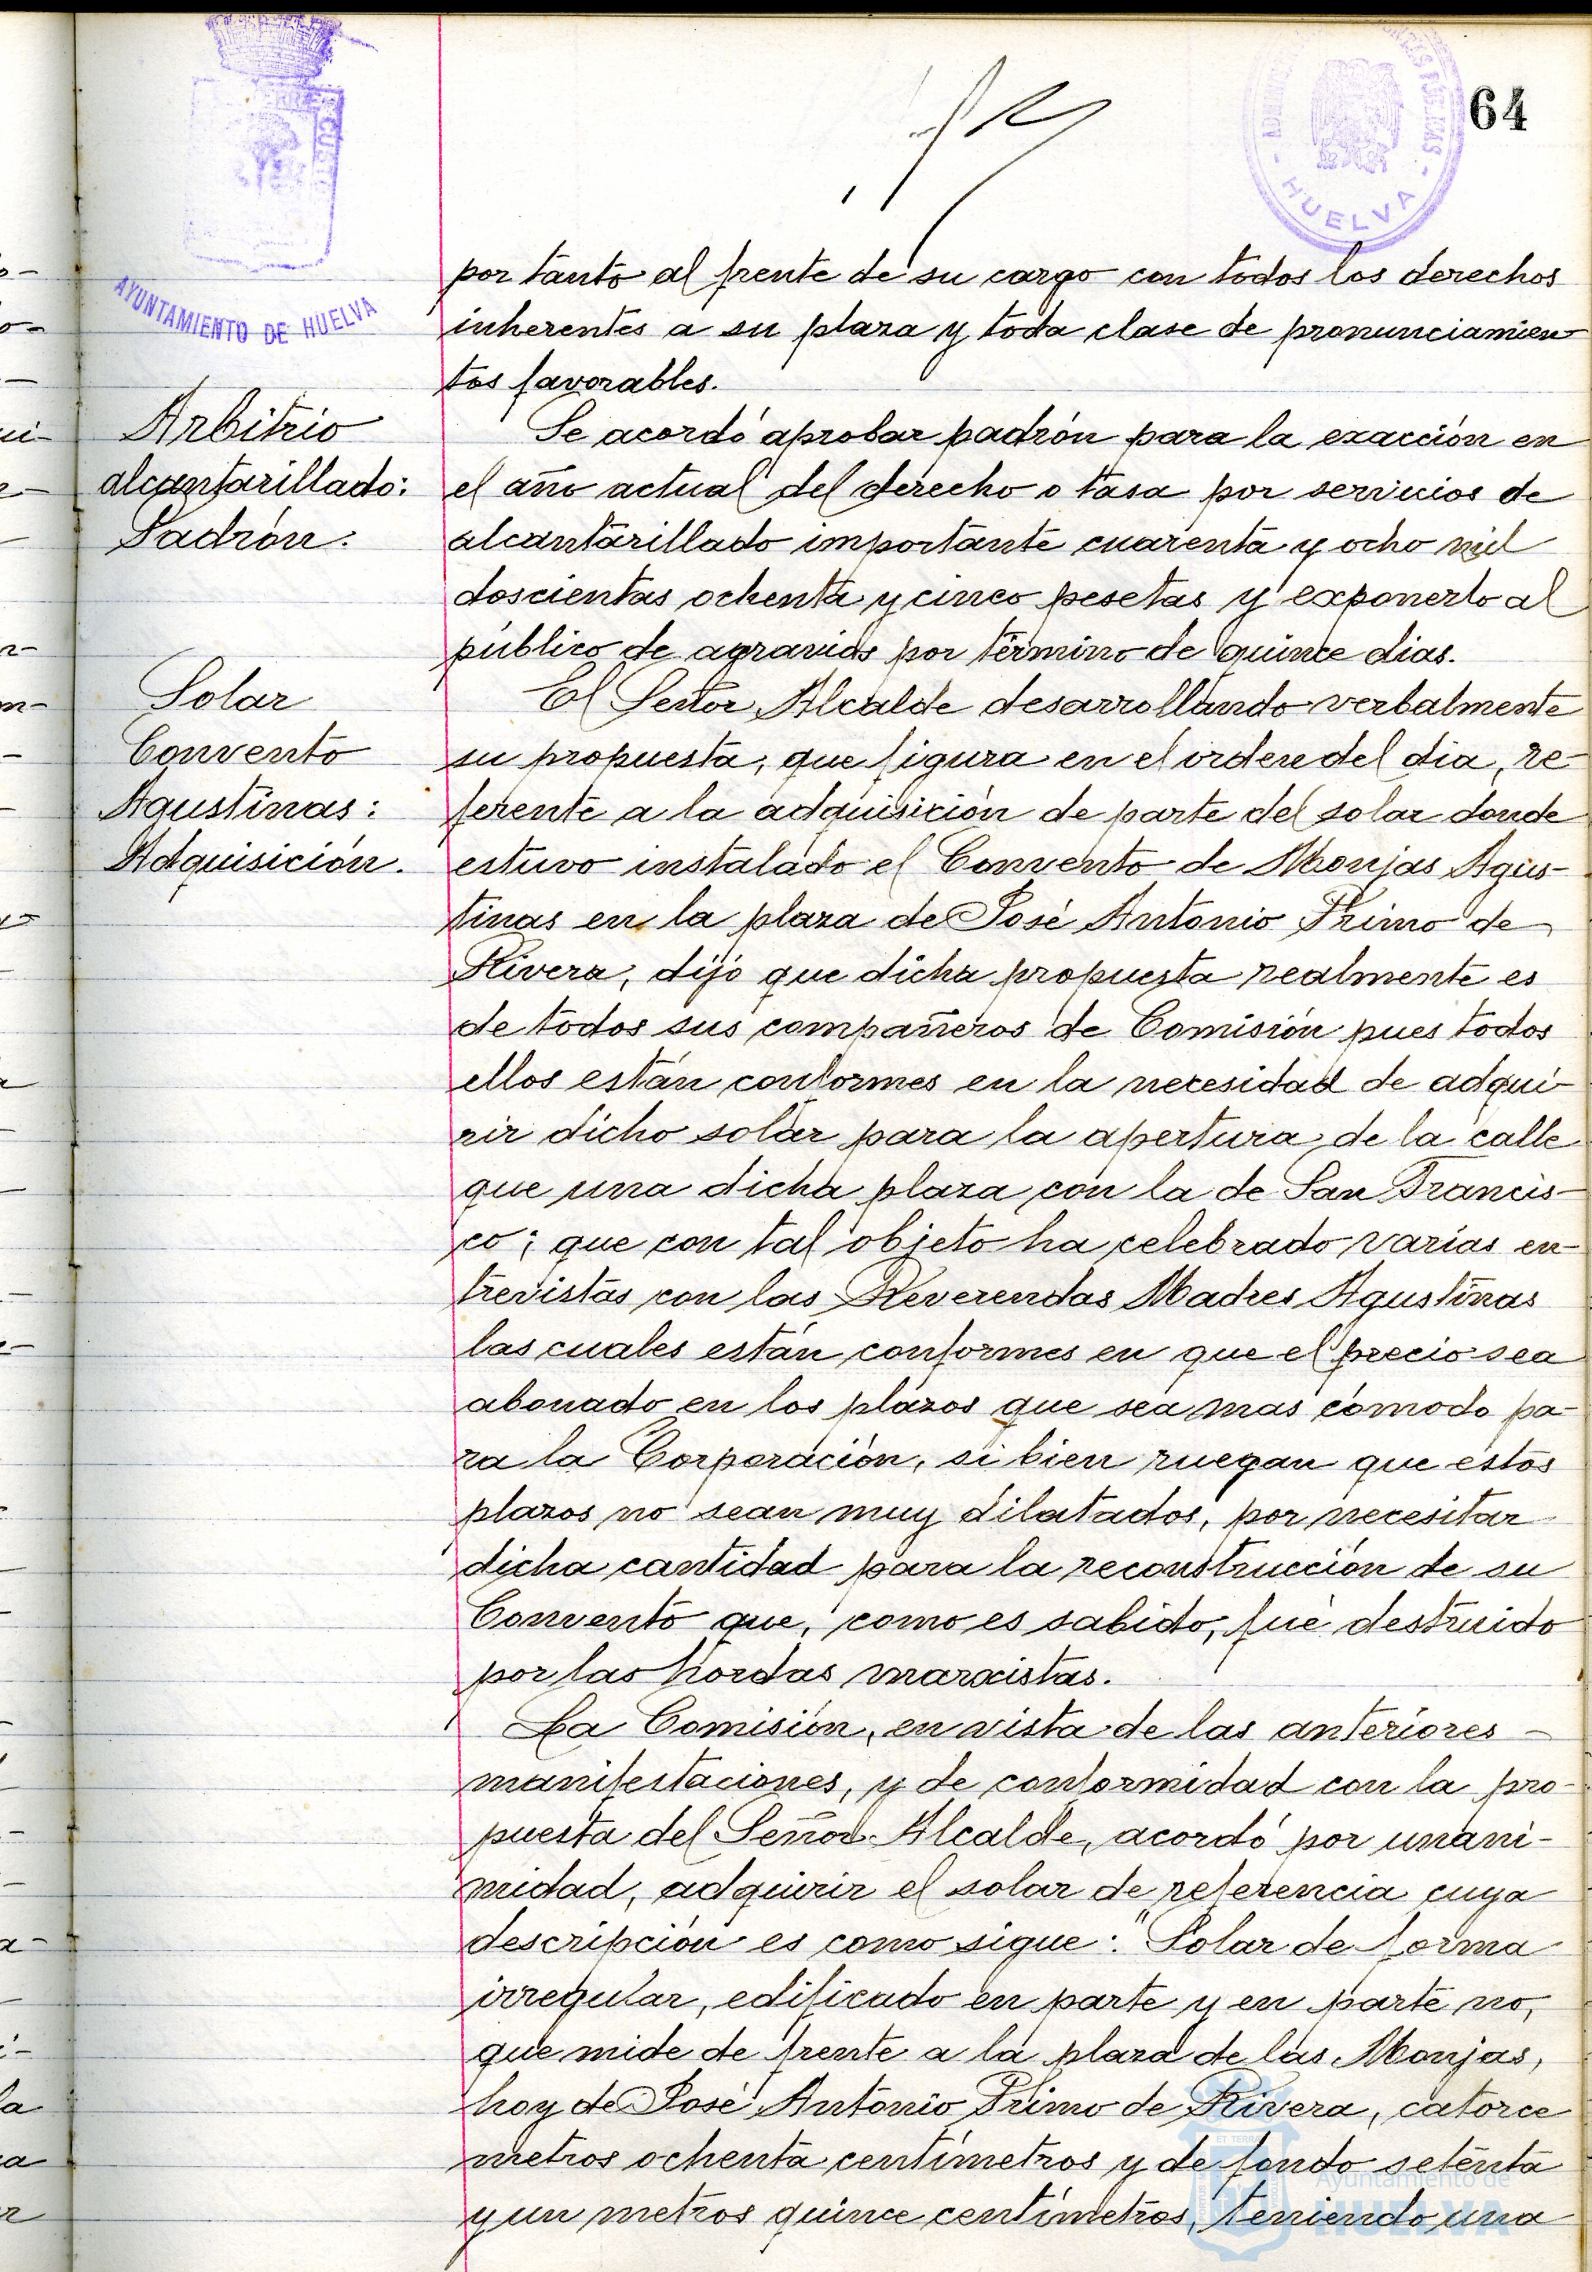 64
AYUNTAMIENTO DE HUELVA
HUELVA
por tanto al frente de su cargo con todos los derechos
inherentes a su plaza y toda clase de pronunciamien-
tos favorables.
Arbitrio
alcantarillado:
Padrón.
Se acordó aprobar padrón para la exacción en
el año actual del derecho o tasa por servicios de
alcantarillado importante cuarenta y ocho mil
doscientas ochenta y cinco pesetas y exponerlo al
público de agravios por término de quince dias.
Solar
Convento
Agustinas:
Adquisición.
El Señor Alcalde desarrollando verbalmente
su propuesta, que figura en el orden del dia, re-
ferente a la adquisición de parte del solar donde
estuvo instalado el Convento de Monjas Agus-
tinas en la plaza de José Antonio Primo de
Rivera, dijo que dicha propuesta realmente es
de todos sus compañeros de Comisión pues todos
ellos están conformes en la necesidad de adqui-
rir dicho solar para la apertura de la calle
que una dicha plaza con la de San Francis-
co; que con tal objeto ha celebrado varias en-
trevistas con las Reverendas Madres Agustinas
las cuales están conformes en que el precio sea
abonado en los plazos que sea mas cómodo pa-
ra la Corporación, si bien ruegan que estos
plazos no sean muy dilatados, por necesitar
dicha cantidad para la reconstrucción de su
Convento que, como es sabido, fué destruido
por las hordas marxistas.
La Comisión, en vista de las anteriores -
manifestaciones, y de conformidad con la pro-
puesta del Señor Alcalde, acordó por unani-
midad, adquirir el solar de referencia cuya
descripción es como sigue: "Solar de forma
irregular, edificado en parte y en parte no,
que mide de frente a la plaza de las Monjas,
hoy de José Antonio Primo de Rivera, catorce
metros ochenta centímetros y de fondo setenta
y un metros quince centímetros, teniendo una
Ayuntamiento de
HUELVA